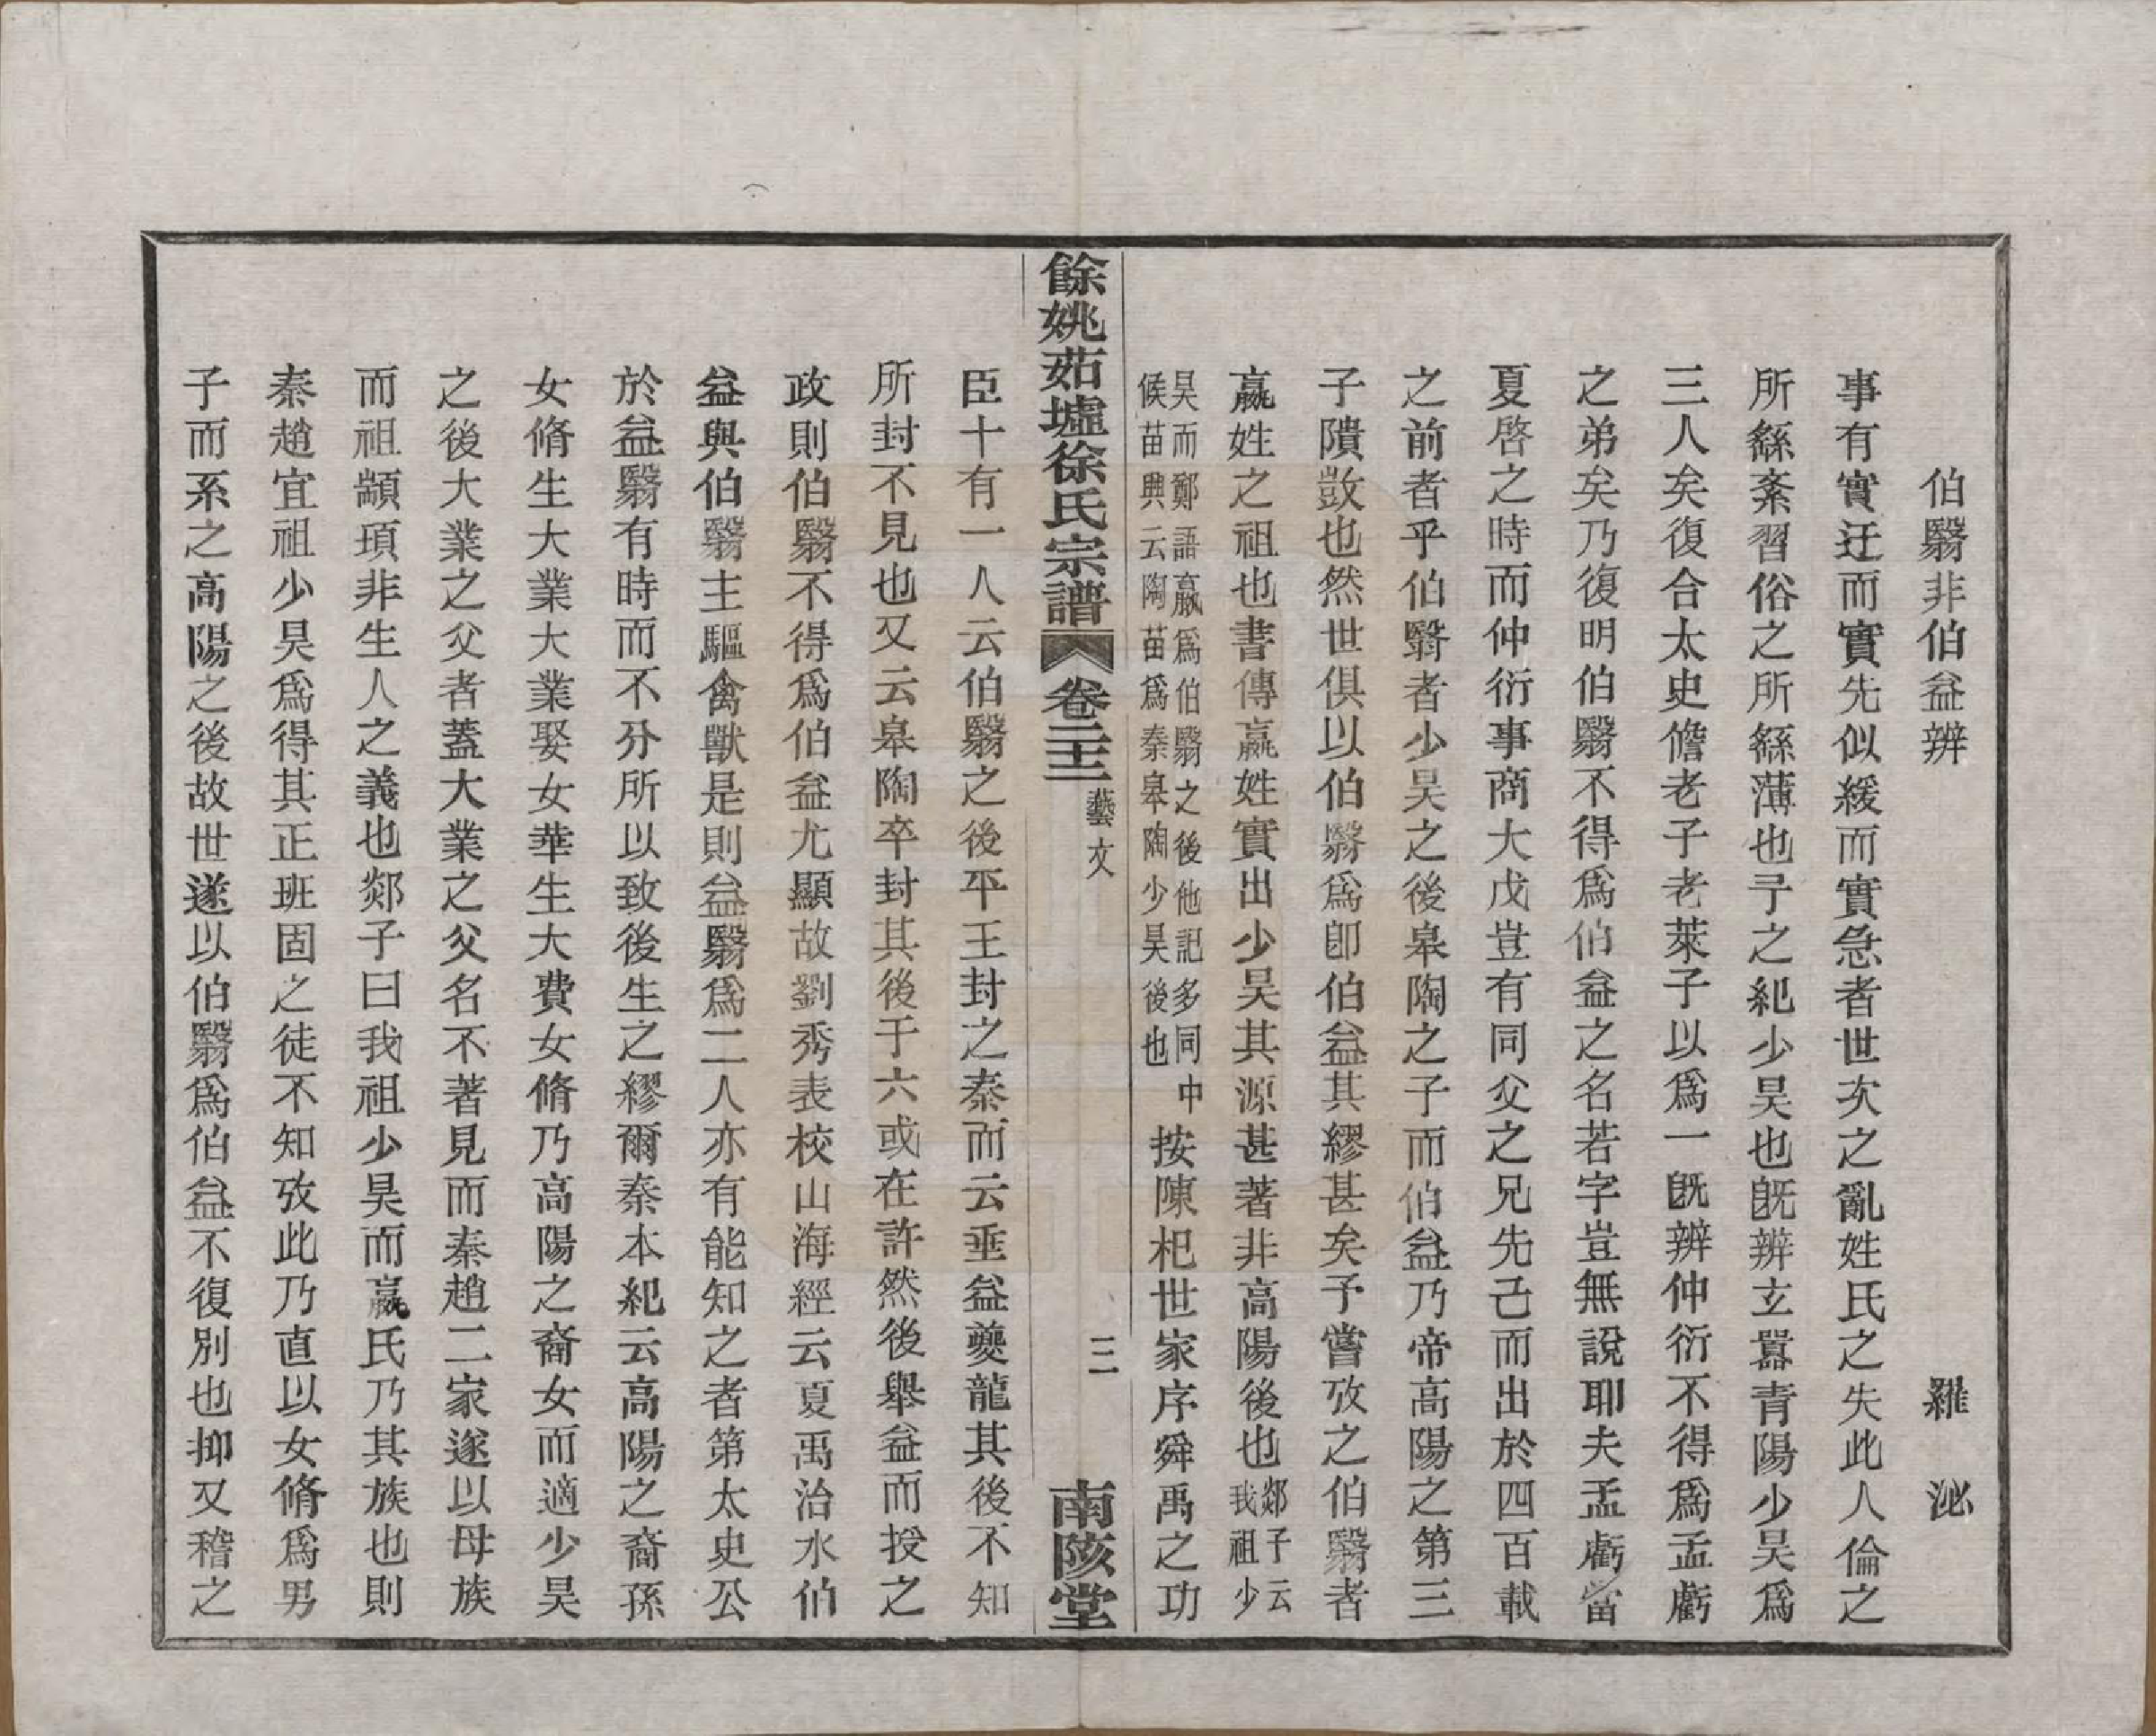 伯翳非伯益辨　羅泌
事有實迂而實先似緩而實急者世次之亂姓氏之失此人倫之
所繇紊習俗之所繇薄也予之紀少昊也旣辨玄囂青陽少昊爲
三人矣復合太史儋老子老萊子以爲一旣辨仲衍不得爲孟虧
之弟矣乃復明伯翳不得爲伯益之名若字豈無說耶夫孟虧當
夏啓之時而仲衍事商大戊豈有同父之兄先己而出於四百載
之前者乎伯翳者少昊之後皋陶之子而伯益乃帝高陽之第三
子隤敳也然世俱以伯翳爲卽伯益其繆甚矣予嘗攷之伯翳者
嬴姓之祖也書傳嬴姓實出少昊其源甚著非高陽後也郯子云我祖少
昊而鄭語嬴爲伯翳之後他記多同中候苗興云陶苗爲秦皋陶少昊後也按陳杞世家序舜禹之功
餘姚茹墟徐氏宗譜　卷二十三　藝文　三　南陔堂
臣十有一人云伯翳之後平王封之秦而云垂益夔龍其後不知
所封不見也又云皋陶卒封其後于六或在許然後舉益而授之
政則伯翳不得爲伯益尤顯故劉秀表校山海經云夏禹治水伯
益與伯翳主驅禽獸是則益翳爲二人亦有能知之者第太史公
於益翳有時而不分所以致後生之繆爾秦本紀云高陽之裔孫
女脩生大業大業娶女華生大費女脩乃高陽之裔女而適少昊
之後大業之父者蓋大業之父名不著見而秦趙二家遂以母族
而祖顓頊非生人之義也郯子曰我祖少昊而嬴氏乃其族也則
秦趙宜祖少昊爲得其正班固之徒不知攷此乃直以女脩爲男
子而系之高陽之後故世遂以伯翳爲伯益不復別也抑又稽之